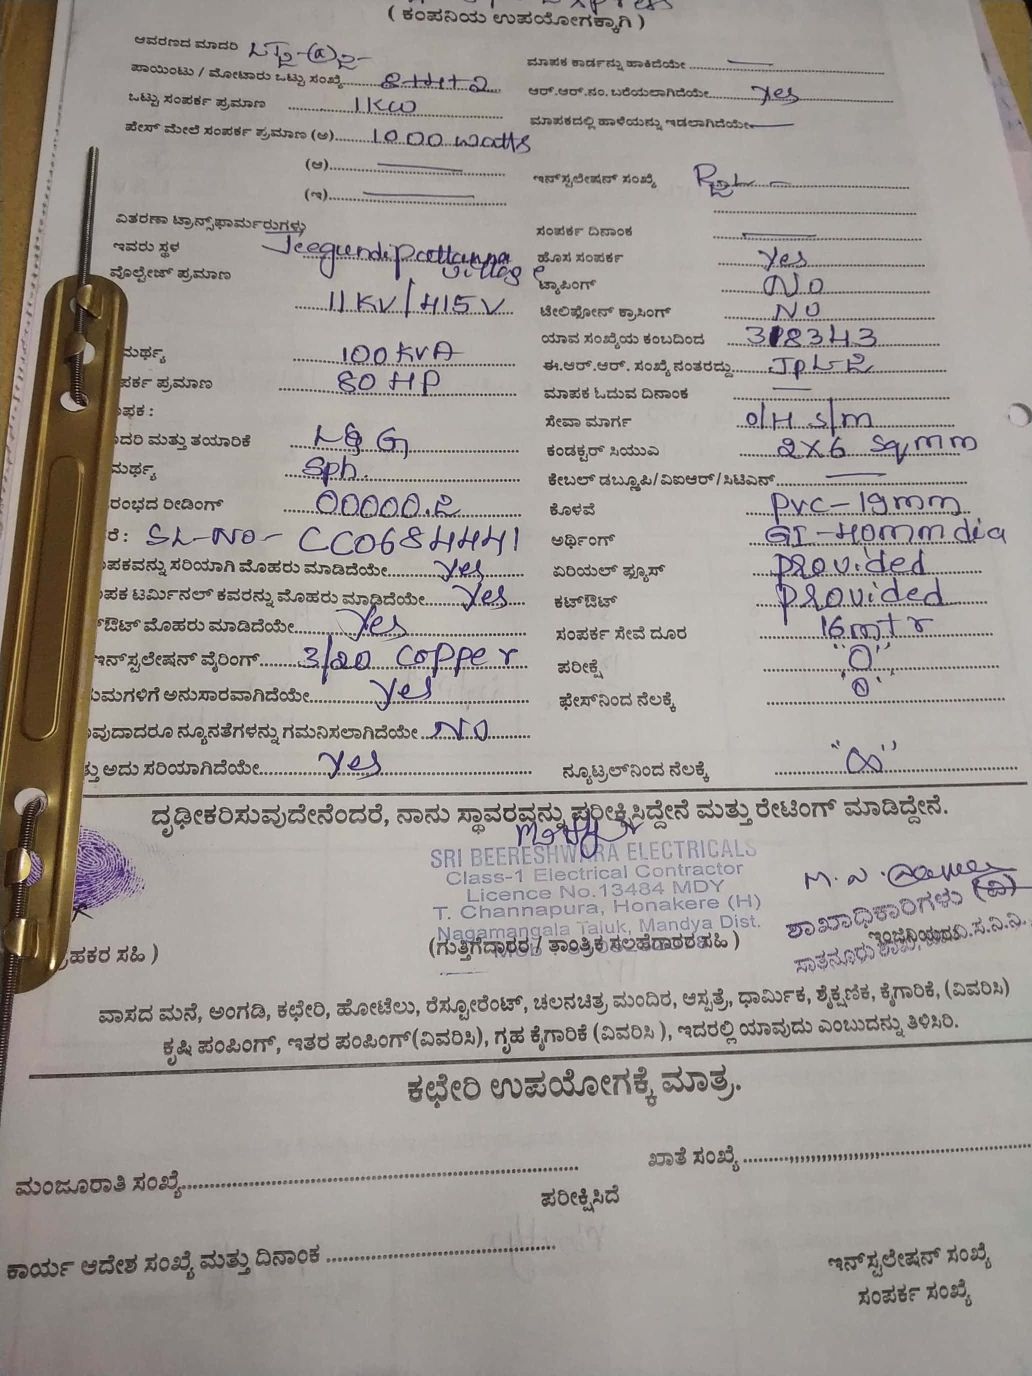 ( ಕಂಪನಿಯ ಉಪಯೋಗಕ್ಕಾಗಿ )
ಆವರಣದ ಮಾದರಿ LT2-(a)2-
ಮಾಪಕ ಕಾರ್ಡನ್ನು ಹಾಕಿದೆಯೇ
ಪಾಯಿಂಟು / ಮೋಟಾರು ಒಟ್ಟು ಸಂಖ್ಯೆ 8+4+2
ಆರ್.ಆರ್.ನಂ. ಬರೆಯಲಾಗಿದೆಯೇ yes
ಒಟ್ಟು ಸಂಪರ್ಕ ಪ್ರಮಾಣ 1KW
ಮಾಪಕದಲ್ಲಿ ಹಾಳೆಯನ್ನು ಇಡಲಾಗಿದೆಯೇ
ಫೇಸ್ ಮೇಲೆ ಸಂಪರ್ಕ ಪ್ರಮಾಣ (ಅ) 1000 watts
(ಆ)
ಇನ್‌ಸ್ಟಲೇಷನ್ ಸಂಖ್ಯೆ
(ಇ)
ವಿತರಣಾ ಟ್ರಾನ್ಸ್‌ಫಾರ್ಮರುಗಳು
ಸಂಪರ್ಕ ದಿನಾಂಕ
ಇವರು ಸ್ಥಳ Jeegundipattanna village
ಹೊಸ ಸಂಪರ್ಕ Yes
ವೋಲ್ಟೇಜ್ ಪ್ರಮಾಣ
ಟ್ಯಾಪಿಂಗ್ NO
11KV/415V
ಟೇಲಿಫೋನ್ ಕ್ರಾಸಿಂಗ್ NO
ಯಾವ ಸಂಖ್ಯೆಯ ಕಂಬದಿಂದ 318343
ಮರ್ಥ್ಯ 100KVA
ಈ.ಆರ್.ಆರ್. ಸಂಖ್ಯೆ ನಂತರದ್ದು JPL2
ಪರ್ಕ ಪ್ರಮಾಣ 80 HP
ಮಾಪಕ ಓದುವ ದಿನಾಂಕ
ಪಕ :
ಸೇವಾ ಮಾರ್ಗ O/H S/m
ದರಿ ಮತ್ತು ತಯಾರಿಕೆ L&G
ಕಂಡಕ್ಟರ್ ಸಿಯುಎ 2X6 sqmm
ಮರ್ಥ್ಯ Sph.
ಕೇಬಲ್ ಡಬ್ಲೂಪಿ/ವಿಐಆರ್/ಸಿಟಿಎಸ್
ರಂಭದ ರೀಡಿಂಗ್ 00000.2
ಕೊಳವೆ PVC-19mm
ರೆ : SL-NO- CC0684441
ಅರ್ಥಿಂಗ್ GI-40mm dia
ಪಕವನ್ನು ಸರಿಯಾಗಿ ಮೊಹರು ಮಾಡಿದೆಯೇ yes
ಏರಿಯಲ್ ಫ್ಯೂಸ್ provided
ಪಕ ಟರ್ಮಿನಲ್ ಕವರನ್ನು ಮೊಹರು ಮಾಡಿದೆಯೇ Yes
ಕಟ್‌ಔಟ್ Provided
ಔಟ್ ಮೊಹರು ಮಾಡಿದೆಯೇ Yes
ಸಂಪರ್ಕ ಸೇವೆ ದೂರ 16mtr
ಇನ್‌ಸ್ಟಲೇಷನ್ ವೈರಿಂಗ್ 3/20 COPPER
ಪರೀಕ್ಷೆ "0"
ಯಮಗಳಿಗೆ ಅನುಸಾರವಾಗಿದೆಯೇ Yes
ಫೇಸ್‌ನಿಂದ ನೆಲಕ್ಕೆ "0"
ವುದಾದರೂ ನ್ಯೂನತೆಗಳನ್ನು ಗಮನಿಸಲಾಗಿದೆಯೇ NO
ತ್ತು ಅದು ಸರಿಯಾಗಿದೆಯೇ Yes
ನ್ಯೂಟ್ರಲ್‌ನಿಂದ ನೆಲಕ್ಕೆ "∞"
ದೃಢೀಕರಿಸುವುದೇನೆಂದರೆ, ನಾನು ಸ್ಥಾವರವನ್ನು ಪರೀಕ್ಷಿಸಿದ್ದೇನೆ ಮತ್ತು ರೇಟಿಂಗ್ ಮಾಡಿದ್ದೇನೆ.
SRI BEERESHWARA ELECTRICALS
Class-1 Electrical Contractor
Licence No.13484 MDY
T. Channapura, Honakere (H)
Nagamangala Taluk, Mandya Dist.
ಶಾಖಾಧಿಕಾರಿಗಳು (ವಿ)
ರಹಕರ ಸಹಿ )
(ಗುತ್ತಿಗೆದಾರರ / ತಾಂತ್ರಿಕ ಸಲಹೆಗಾರರ ಸಹಿ )
ಇಂಜಿನಿಯರು
ವಾಸದ ಮನೆ, ಅಂಗಡಿ, ಕಛೇರಿ, ಹೋಟೆಲು, ರೆಸ್ಟೋರೆಂಟ್, ಚಲನಚಿತ್ರ ಮಂದಿರ, ಆಸ್ಪತ್ರೆ, ಧಾರ್ಮಿಕ, ಶೈಕ್ಷಣಿಕ, ಕೈಗಾರಿಕೆ, (ವಿವರಿಸಿ)
ಕೃಷಿ ಪಂಪಿಂಗ್, ಇತರ ಪಂಪಿಂಗ್(ವಿವರಿಸಿ), ಗೃಹ ಕೈಗಾರಿಕೆ (ವಿವರಿಸಿ ), ಇದರಲ್ಲಿ ಯಾವುದು ಎಂಬುದನ್ನು ತಿಳಿಸಿರಿ.
ಕಛೇರಿ ಉಪಯೋಗಕ್ಕೆ ಮಾತ್ರ.
ಮಂಜೂರಾತಿ ಸಂಖ್ಯೆ
ಖಾತೆ ಸಂಖ್ಯೆ
ಪರೀಕ್ಷಿಸಿದೆ
ಕಾರ್ಯ ಆದೇಶ ಸಂಖ್ಯೆ ಮತ್ತು ದಿನಾಂಕ
ಇನ್‌ಸ್ಟಲೇಷನ್ ಸಂಖ್ಯೆ
ಸಂಪರ್ಕ ಸಂಖ್ಯೆ